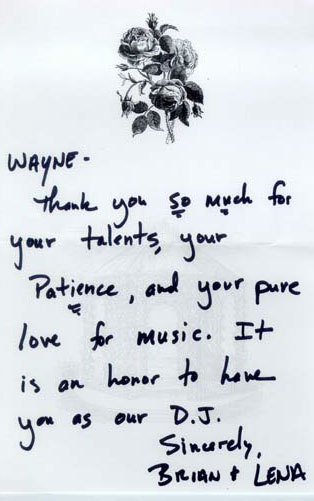 WAYNE-
Thank you so much for
your talents, your
Patience, and your pure
love for music. It
is an honor to have
you as our D.J.
Sincerely,
BRIAN + LENA